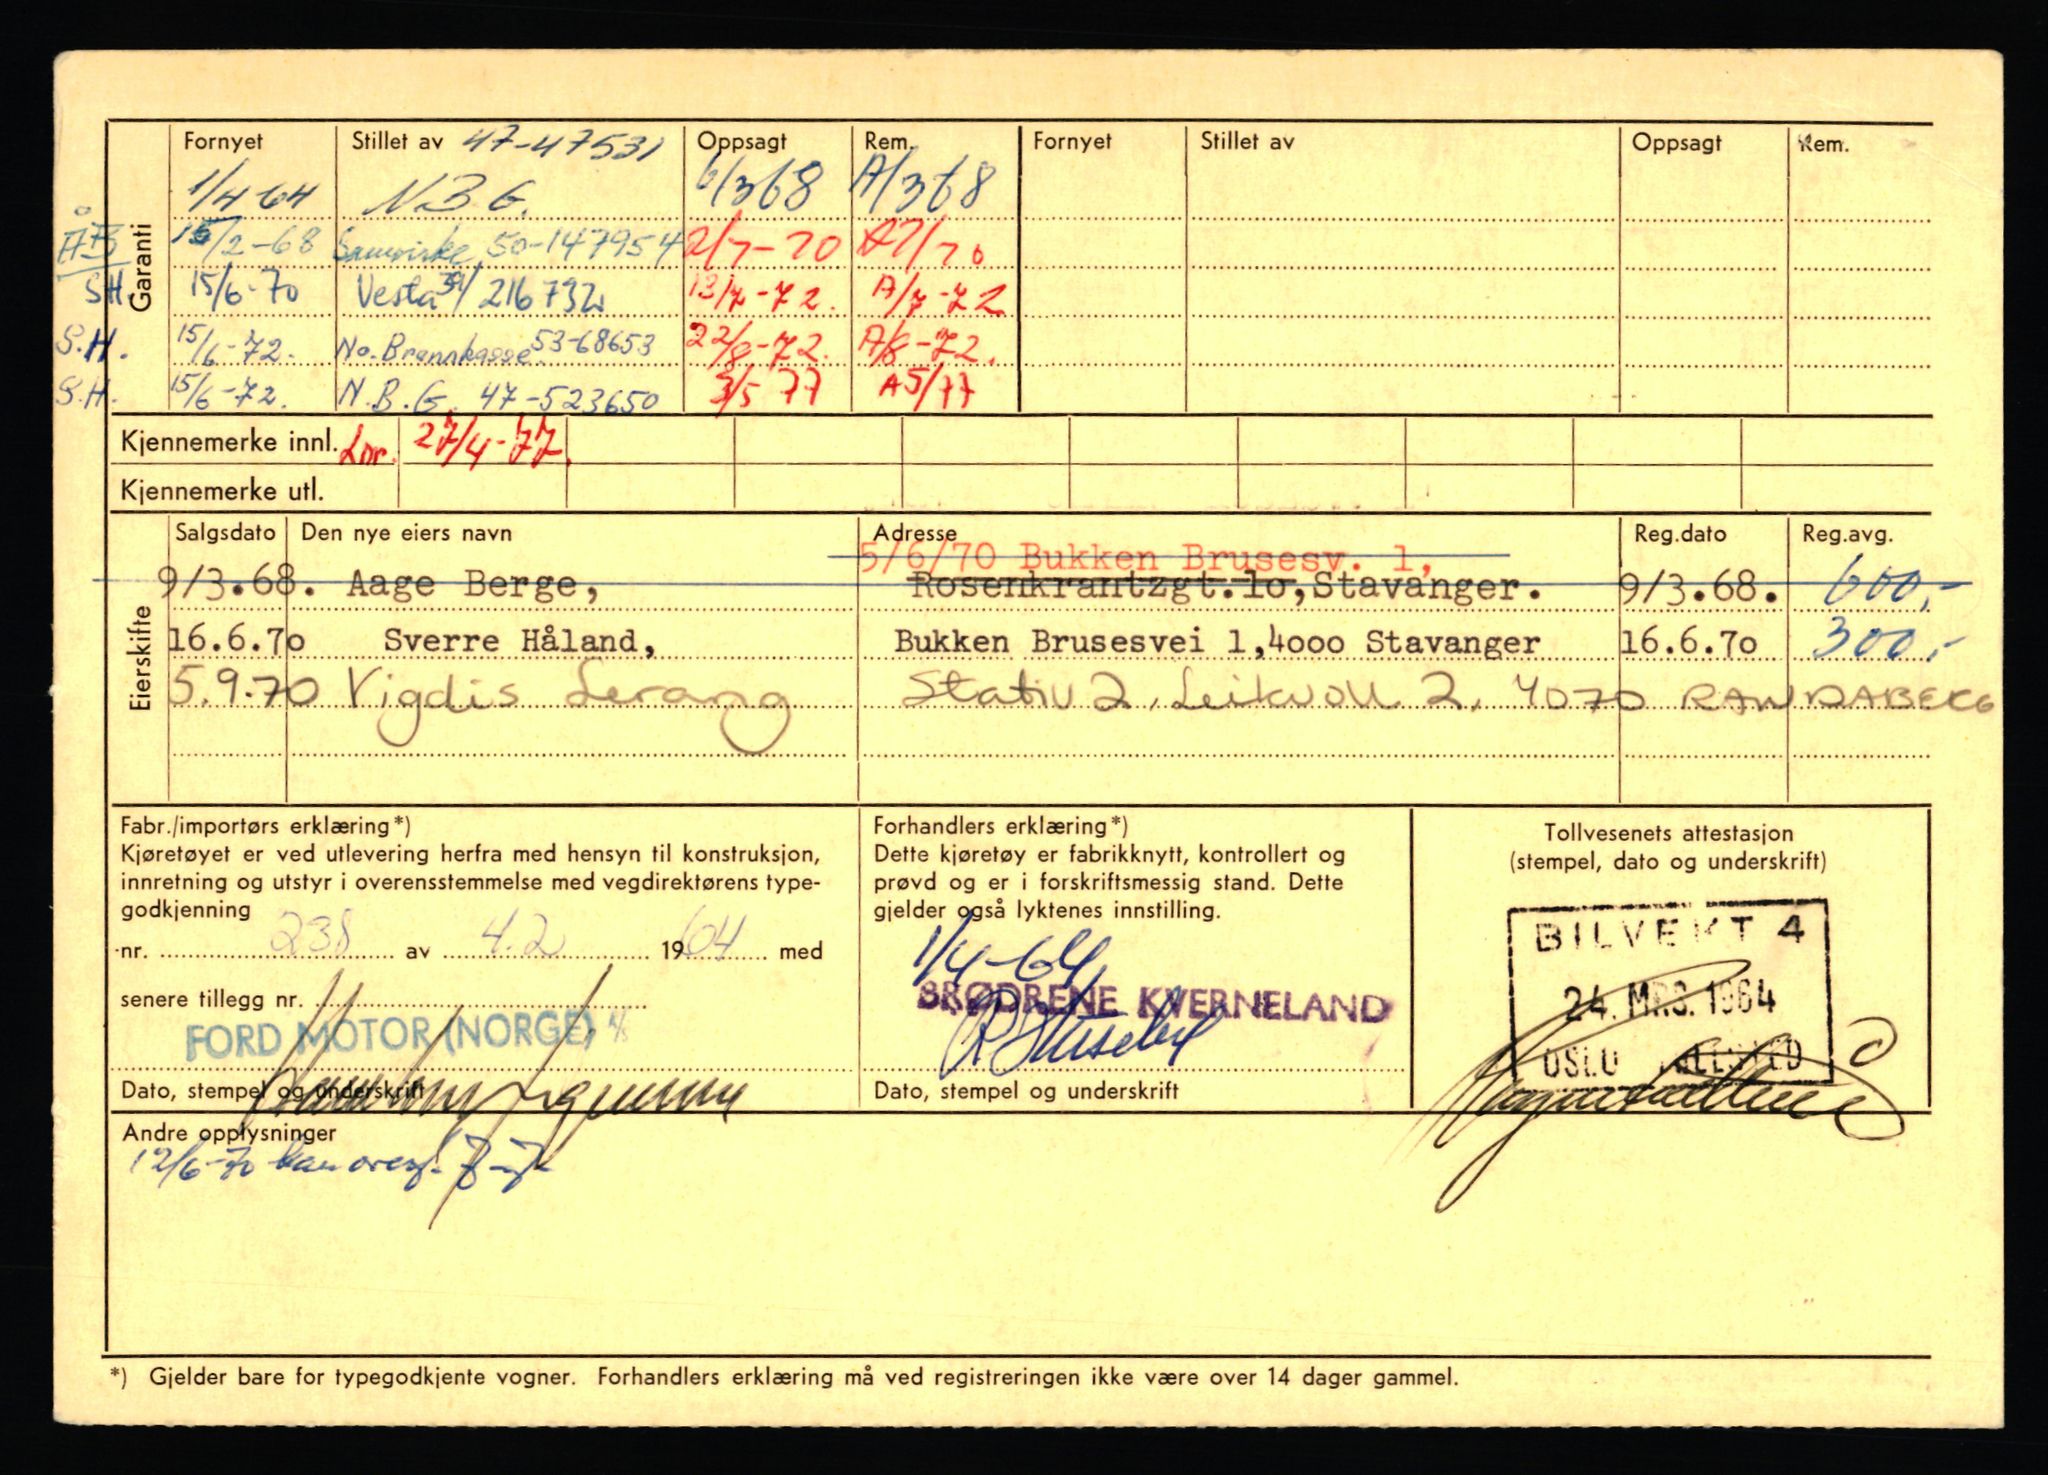 Fornyet Stillet av 47-47531 Oppsagt Rem. Fornyet Stillet av Oppsagt Rem.
Garanti
1/4-64 N.B.G. 6/3 68 A/3 68
ÅB 15/2-68 Samvirke 50-147954 2/7-70 A7/70
SH. 15/6-70 Vesta 39/216732 13/7-72. A/7-72
S.H. 15/6-72. No. Brannkasse 53-68653 22/8-72. A/8-72.
S.H. 15/6-72. N.B.G. 47-523650 3/5 77 A5/77
Kjennemerke innl. Lor. 27/4-77.
Kjennemerke utl.
Eierskifte
Salgsdato Den nye eiers navn Adresse Reg.dato Reg.avg.
5/6/70 Bukken Brusesv. 1,
9/3.68. Aage Berge, Rosenkrantzgt.10, Stavanger. 9/3.68. 600,-
16.6.70 Sverre Håland, Bukken Brusesvei 1,4000 Stavanger 16.6.70 300,-
5.9.70 Vigdis Lerang Stativ 2, Leikvoll 2, 4070 RANDABERG
Fabr./importørs erklæring*)
Kjøretøyet er ved utlevering herfra med hensyn til konstruksjon,
innretning og utstyr i overensstemmelse med vegdirektørens type-
godkjenning
nr. 238 av 4.2 1964 med
senere tillegg nr.
FORD MOTOR (NORGE) A/S
Dato, stempel og underskrift
Forhandlers erklæring*)
Dette kjøretøy er fabrikknytt, kontrollert og
prøvd og er i forskriftsmessig stand. Dette
gjelder også lyktenes innstilling.
1/4-64
BRØDRENE KVERNELAND
Dato, stempel og underskrift
Tollvesenets attestasjon
(stempel, dato og underskrift)
BILVEKT 4
24. MRS. 1964
OSLO TOLLSTED
Andre opplysninger
12/6-70
*) Gjelder bare for typegodkjente vogner. Forhandlers erklæring må ved registreringen ikke være over 14 dager gammel.